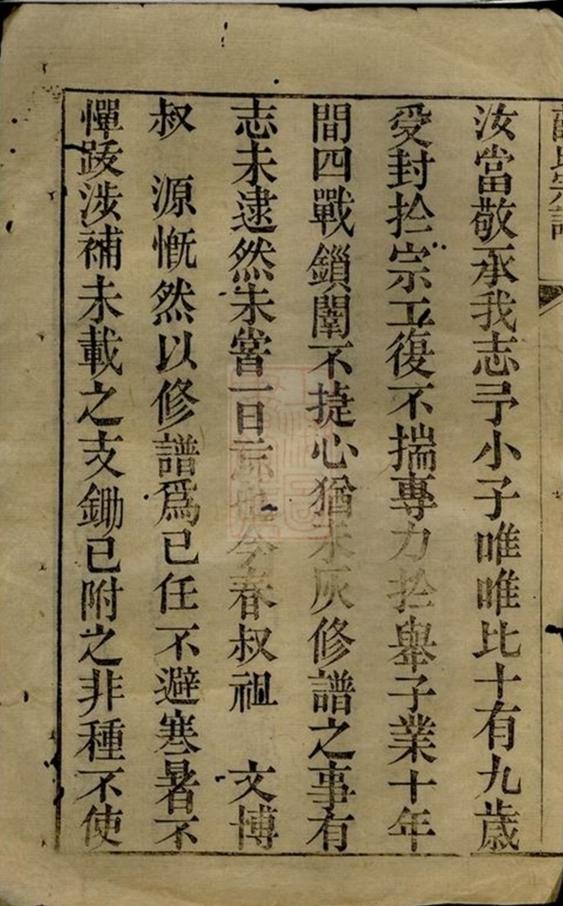 汝當敬承我志予小子唯唯比十有九歲
受封扵宗工復不揣專力扵舉子業十年
間四戰鎖闈不捷心猶未灰修譜之事有
志未逮然未嘗一日忘也今春叔祖　文博
叔　源慨然以修譜爲己任不避寒暑不
憚跋涉補未載之支鋤已附之非種不使